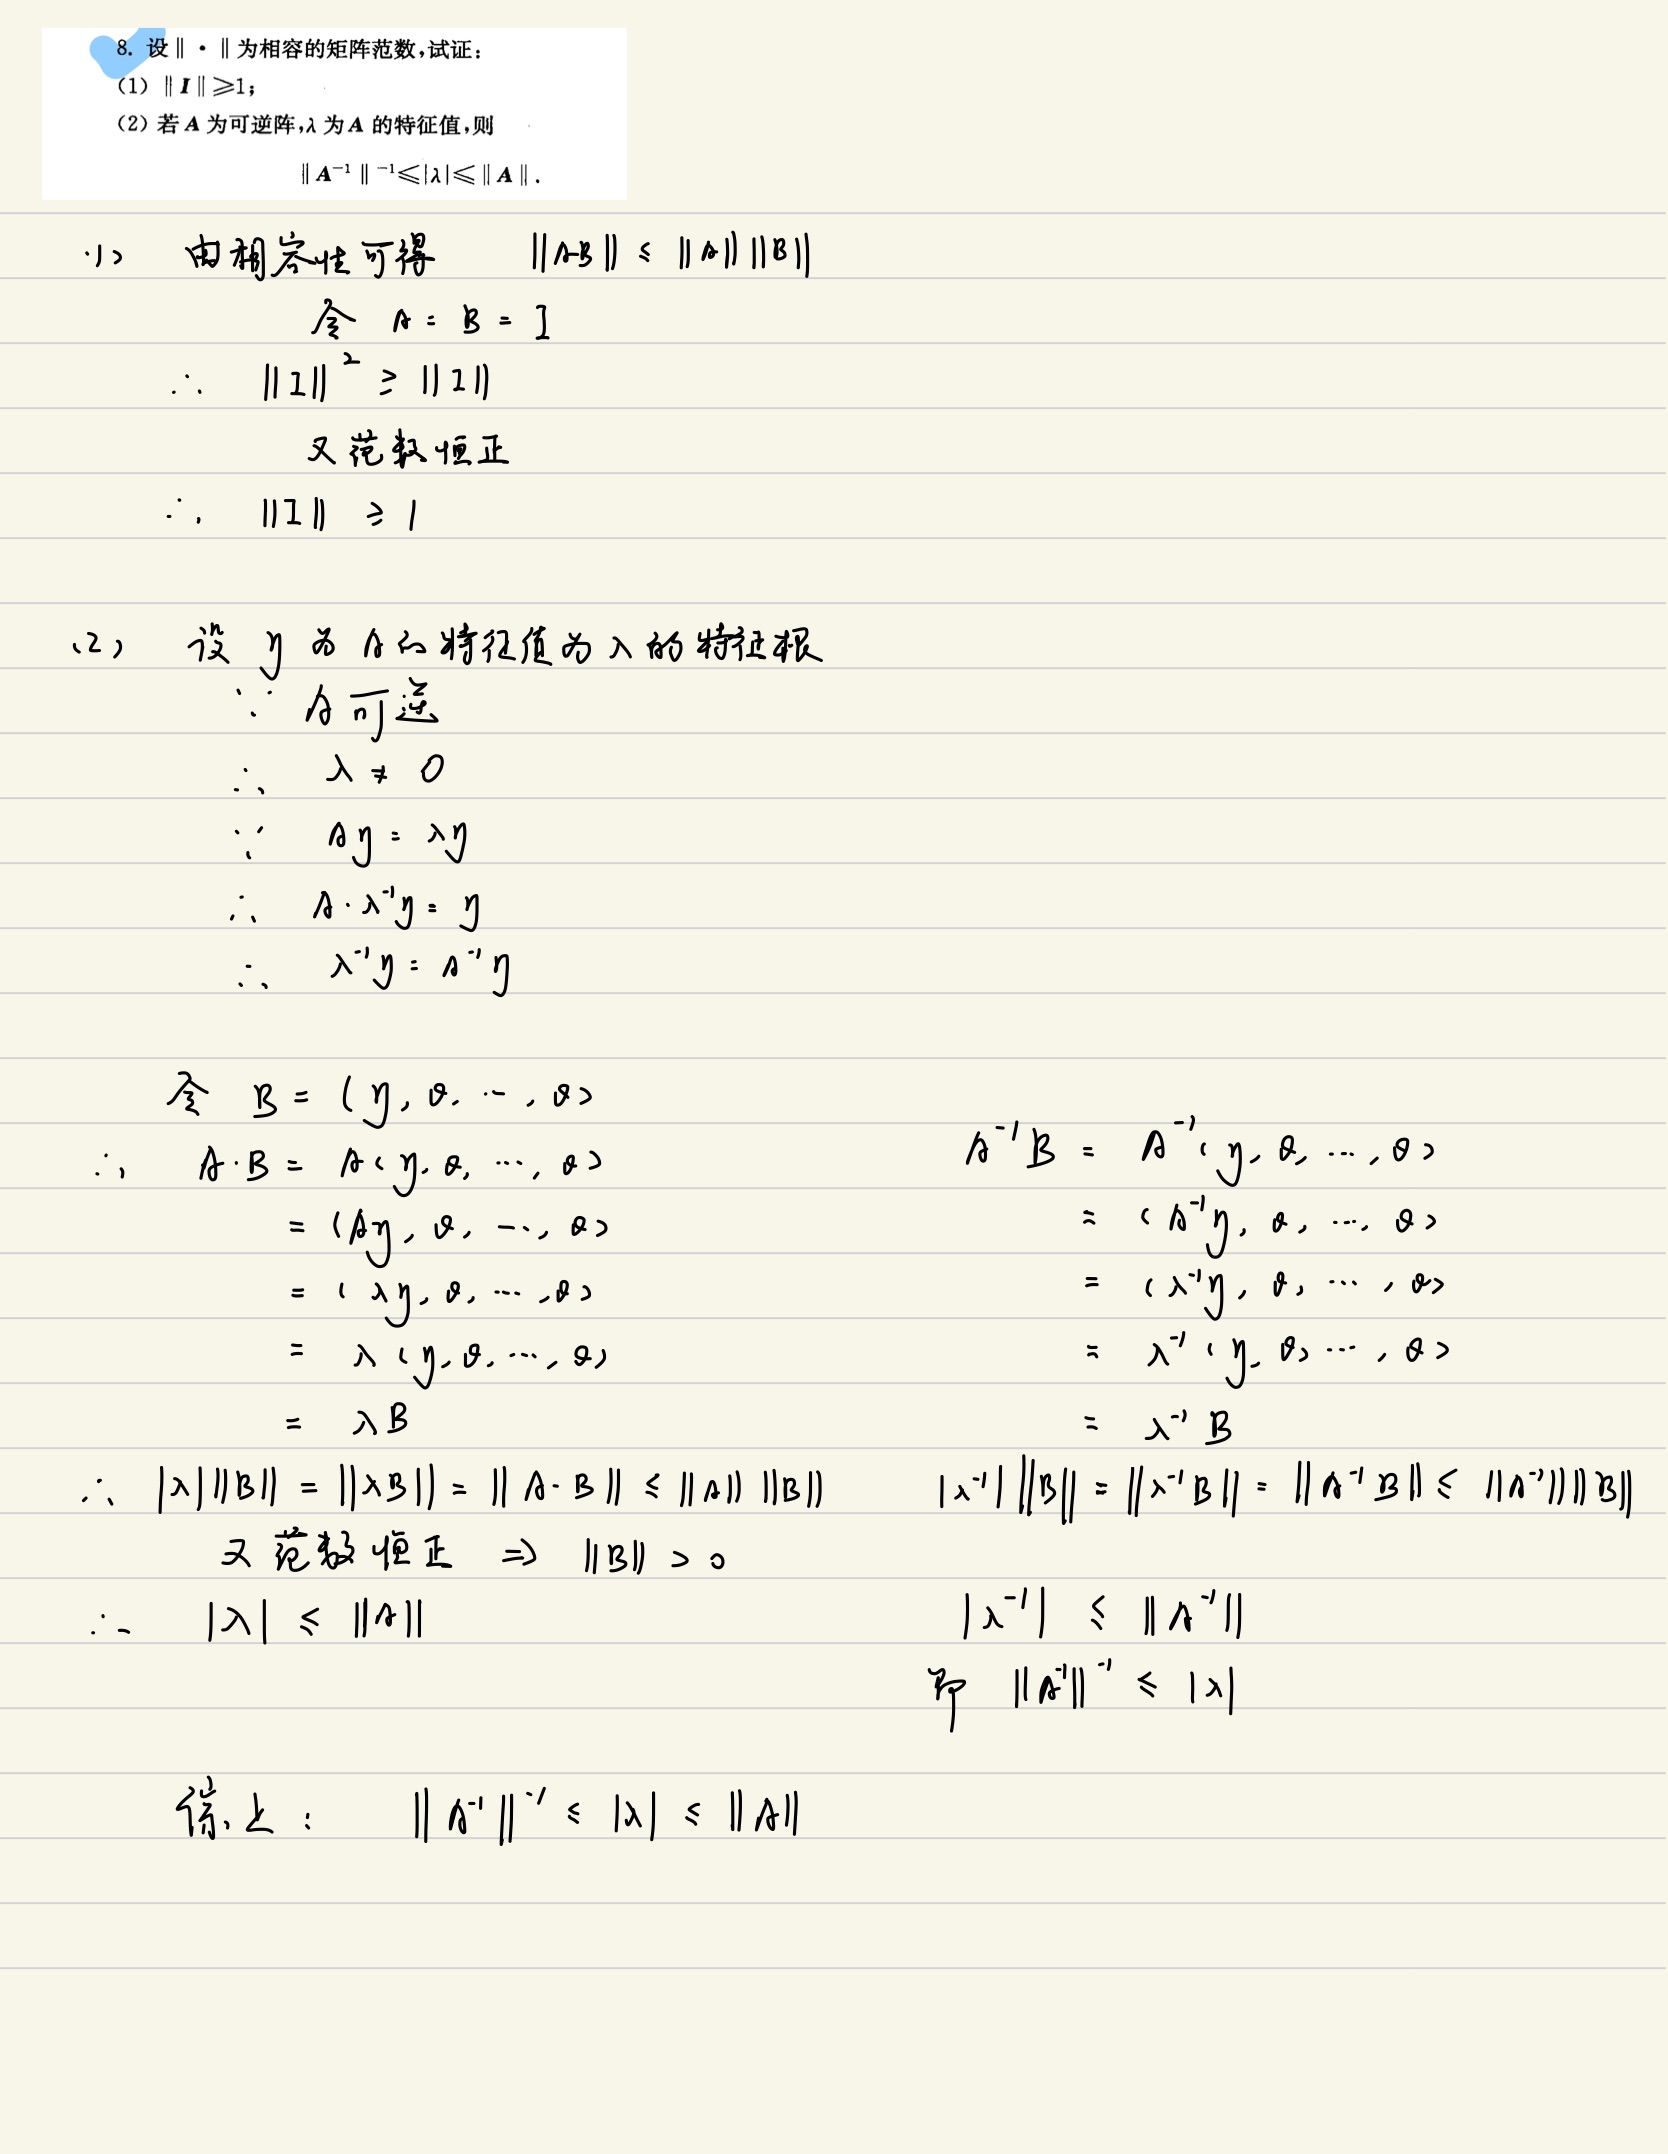 8. 设‖·‖为相容的矩阵范数,试证:
(1) ‖I‖≥1;
(2) 若A为可逆阵,λ为A的特征值,则
‖A⁻¹‖⁻¹≤|λ|≤‖A‖.
(1) 由相容性可得 ‖AB‖ ≤ ‖A‖‖B‖
令 A = B = I
∴ ‖I‖² ≥ ‖I‖
又范数恒正
∴ ‖I‖ ≥ 1
(2) 设 η 为 A的特征值为 λ 的特征根
∵ A可逆
∴ λ ≠ 0
∵ Aη = λη
∴ A·λ⁻¹η = η
∴ λ⁻¹η = A⁻¹η
令 B = (η, θ, ⋯, θ)
∴ A·B = A(η, θ, ⋯, θ)
= (Aη, θ, ⋯, θ)
= (λη, θ, ⋯, θ)
= λ(η, θ, ⋯, θ)
= λB
∴ |λ|‖B‖ = ‖λB‖ = ‖A·B‖ ≤ ‖A‖ ‖B‖
又范数恒正 ⇒ ‖B‖ > 0
∴ |λ| ≤ ‖A‖
A⁻¹B = A⁻¹(η, θ, ⋯, θ)
= (A⁻¹η, θ, ⋯, θ)
= (λ⁻¹η, θ, ⋯, θ)
= λ⁻¹(η, θ, ⋯, θ)
= λ⁻¹B
|λ⁻¹|‖B‖ = ‖λ⁻¹B‖ = ‖A⁻¹B‖ ≤ ‖A⁻¹‖‖B‖
|λ⁻¹| ≤ ‖A⁻¹‖
即 ‖A⁻¹‖⁻¹ ≤ |λ|
综上: ‖A⁻¹‖⁻¹ ≤ |λ| ≤ ‖A‖